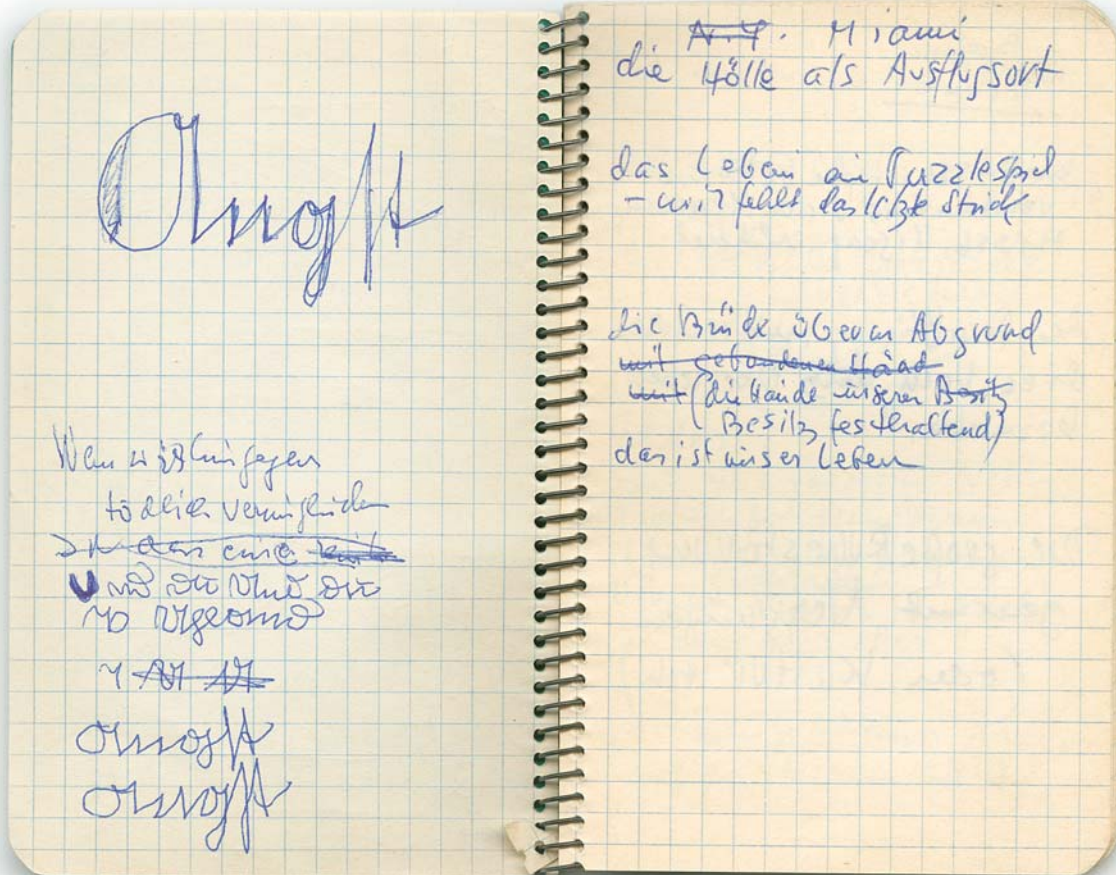 Angst
hingegen
tödlich verunglücken
und
Angst
Angst
N.Y. Miami
die Hölle als Ausflugsort
das Leben ein Puzzlespiel
– mir fehlt das letzte Stück
die Brücke überm Abgrund
mit gebundenen Händ
mit (die Hände unseren Besitz
Besitz festhaltend)
das ist unser Leben